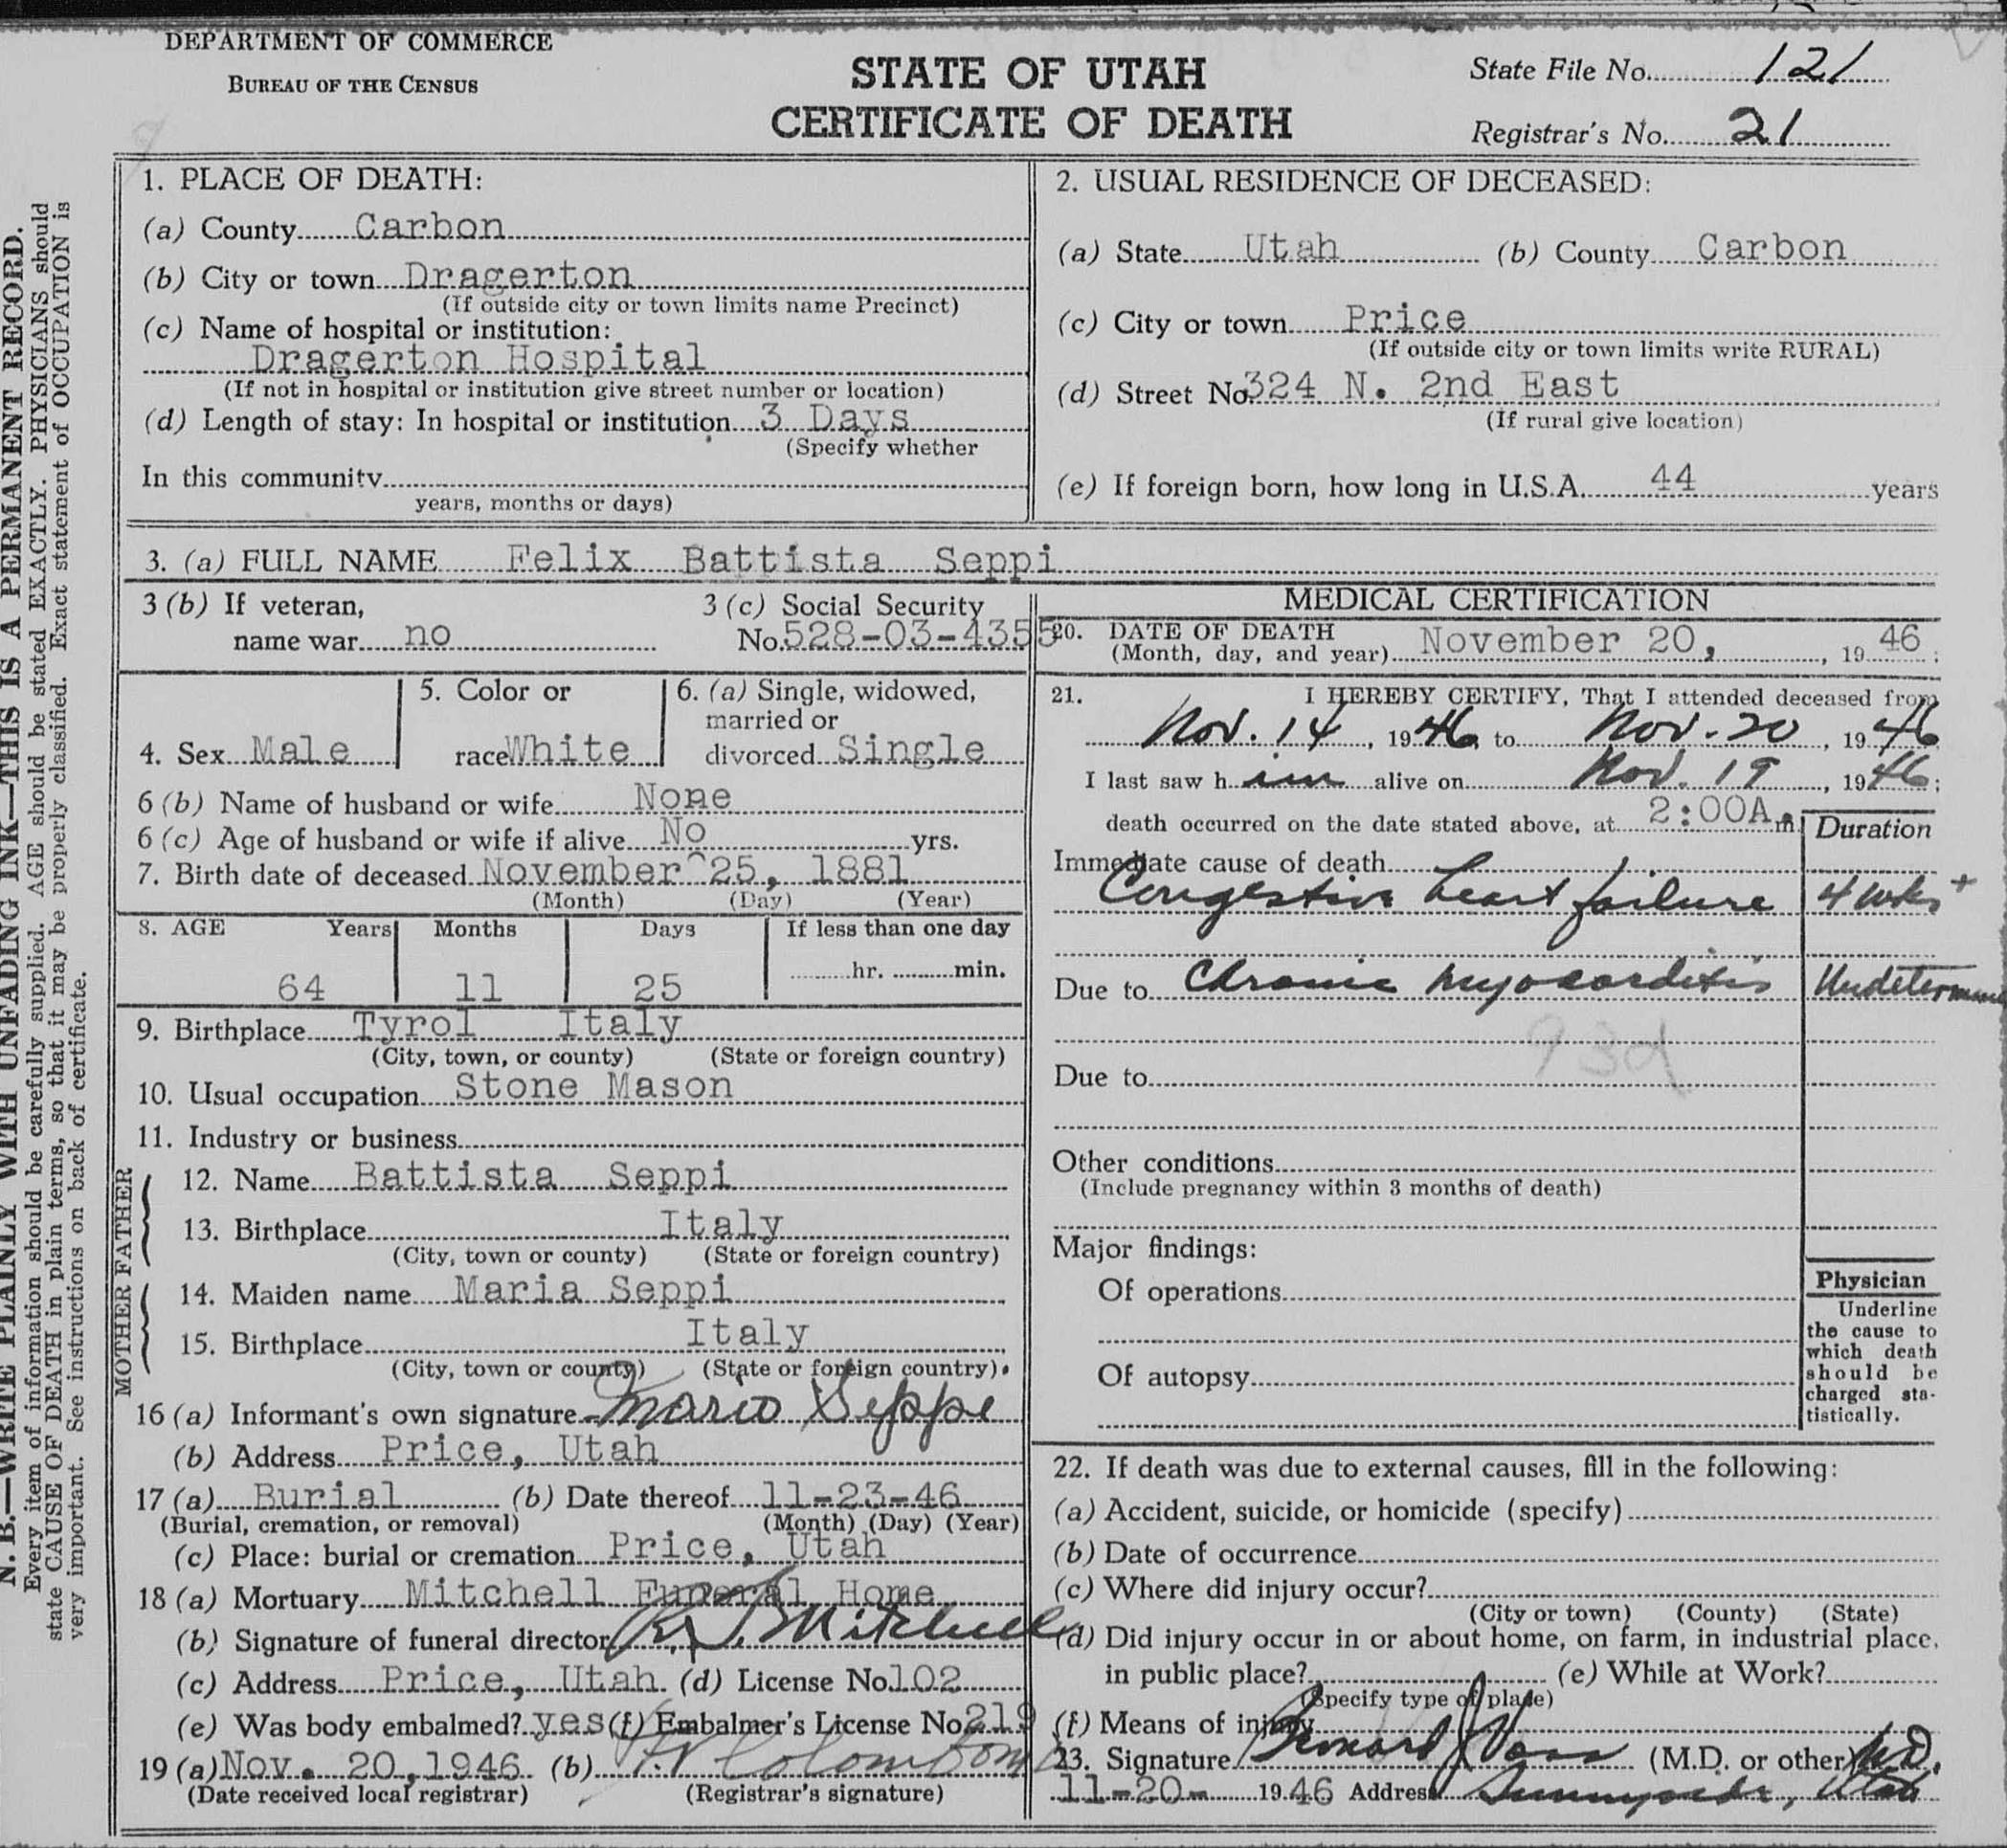 DEPARTMENT OF COMMERCE
BUREAU OF THE CENSUS
STATE OF UTAH
CERTIFICATE OF DEATH
State File No. 121
Registrar's No. 21
N. B.—WRITE PLAINLY WITH UNFADING INK—THIS IS A PERMANENT RECORD.
Every item of information should be carefully supplied. AGE should be stated EXACTLY. PHYSICIANS should
state CAUSE OF DEATH in plain terms, so that it may be properly classified. Exact statement of OCCUPATION is
very important. See instructions on back of certificate.
1. PLACE OF DEATH:
(a) County Carbon
(b) City or town Dragerton
(If outside city or town limits name Precinct)
(c) Name of hospital or institution:
Dragerton Hospital
(If not in hospital or institution give street number or location)
(d) Length of stay: In hospital or institution 3 Days
(Specify whether
In this community
years, months or days)
2. USUAL RESIDENCE OF DECEASED:
(a) State Utah (b) County Carbon
(c) City or town Price
(If outside city or town limits write RURAL)
(d) Street No. 324 N. 2nd East
(If rural give location)
(e) If foreign born, how long in U.S.A. 44 years
3. (a) FULL NAME Felix Battista Seppi
3 (b) If veteran,
name war no
3 (c) Social Security
No. 528-03-4355
4. Sex Male
5. Color or
race White
6. (a) Single, widowed,
married or
divorced Single
6 (b) Name of husband or wife None
6 (c) Age of husband or wife if alive No yrs.
7. Birth date of deceased November 25, 1881
(Month) (Day) (Year)
8. AGE Years Months Days If less than one day
64 11 25 hr. min.
9. Birthplace Tyrol Italy
(City, town, or county) (State or foreign country)
10. Usual occupation Stone Mason
11. Industry or business
FATHER
12. Name Battista Seppi
13. Birthplace Italy
(City, town or county) (State or foreign country)
MOTHER
14. Maiden name Maria Seppi
15. Birthplace Italy
(City, town or county) (State or foreign country)
16 (a) Informant's own signature Mario Seppi
(b) Address Price, Utah
17 (a) Burial (b) Date thereof 11-23-46
(Burial, cremation, or removal) (Month) (Day) (Year)
(c) Place: burial or cremation Price, Utah
18 (a) Mortuary Mitchell Funeral Home
(b) Signature of funeral director Mitchell
(c) Address Price, Utah (d) License No. 102
(e) Was body embalmed? yes (f) Embalmer's License No. 219
19 (a) Nov. 20, 1946 (b)
(Date received local registrar) (Registrar's signature)
MEDICAL CERTIFICATION
20. DATE OF DEATH
(Month, day, and year) November 20, 1946;
21. I HEREBY CERTIFY, That I attended deceased from
Nov. 14, 1946, to Nov. 20, 1946
I last saw him alive on Nov. 19, 1946;
death occurred on the date stated above, at 2:00A.m. Duration
Immediate cause of death
Congestive heart failure 4 wks +
Due to Chronic myocarditis Undetermined
93d
Due to
Other conditions
(Include pregnancy within 3 months of death)
Major findings:
Of operations
Of autopsy
Physician
Underline
the cause to
which death
should be
charged sta-
tistically.
22. If death was due to external causes, fill in the following:
(a) Accident, suicide, or homicide (specify)
(b) Date of occurrence
(c) Where did injury occur?
(City or town) (County) (State)
(d) Did injury occur in or about home, on farm, in industrial place,
in public place? (e) While at Work?
(Specify type of place)
(f) Means of injury
23. Signature (M.D. or other) M.D.
11-20- 1946 Address Sunnyside, Utah